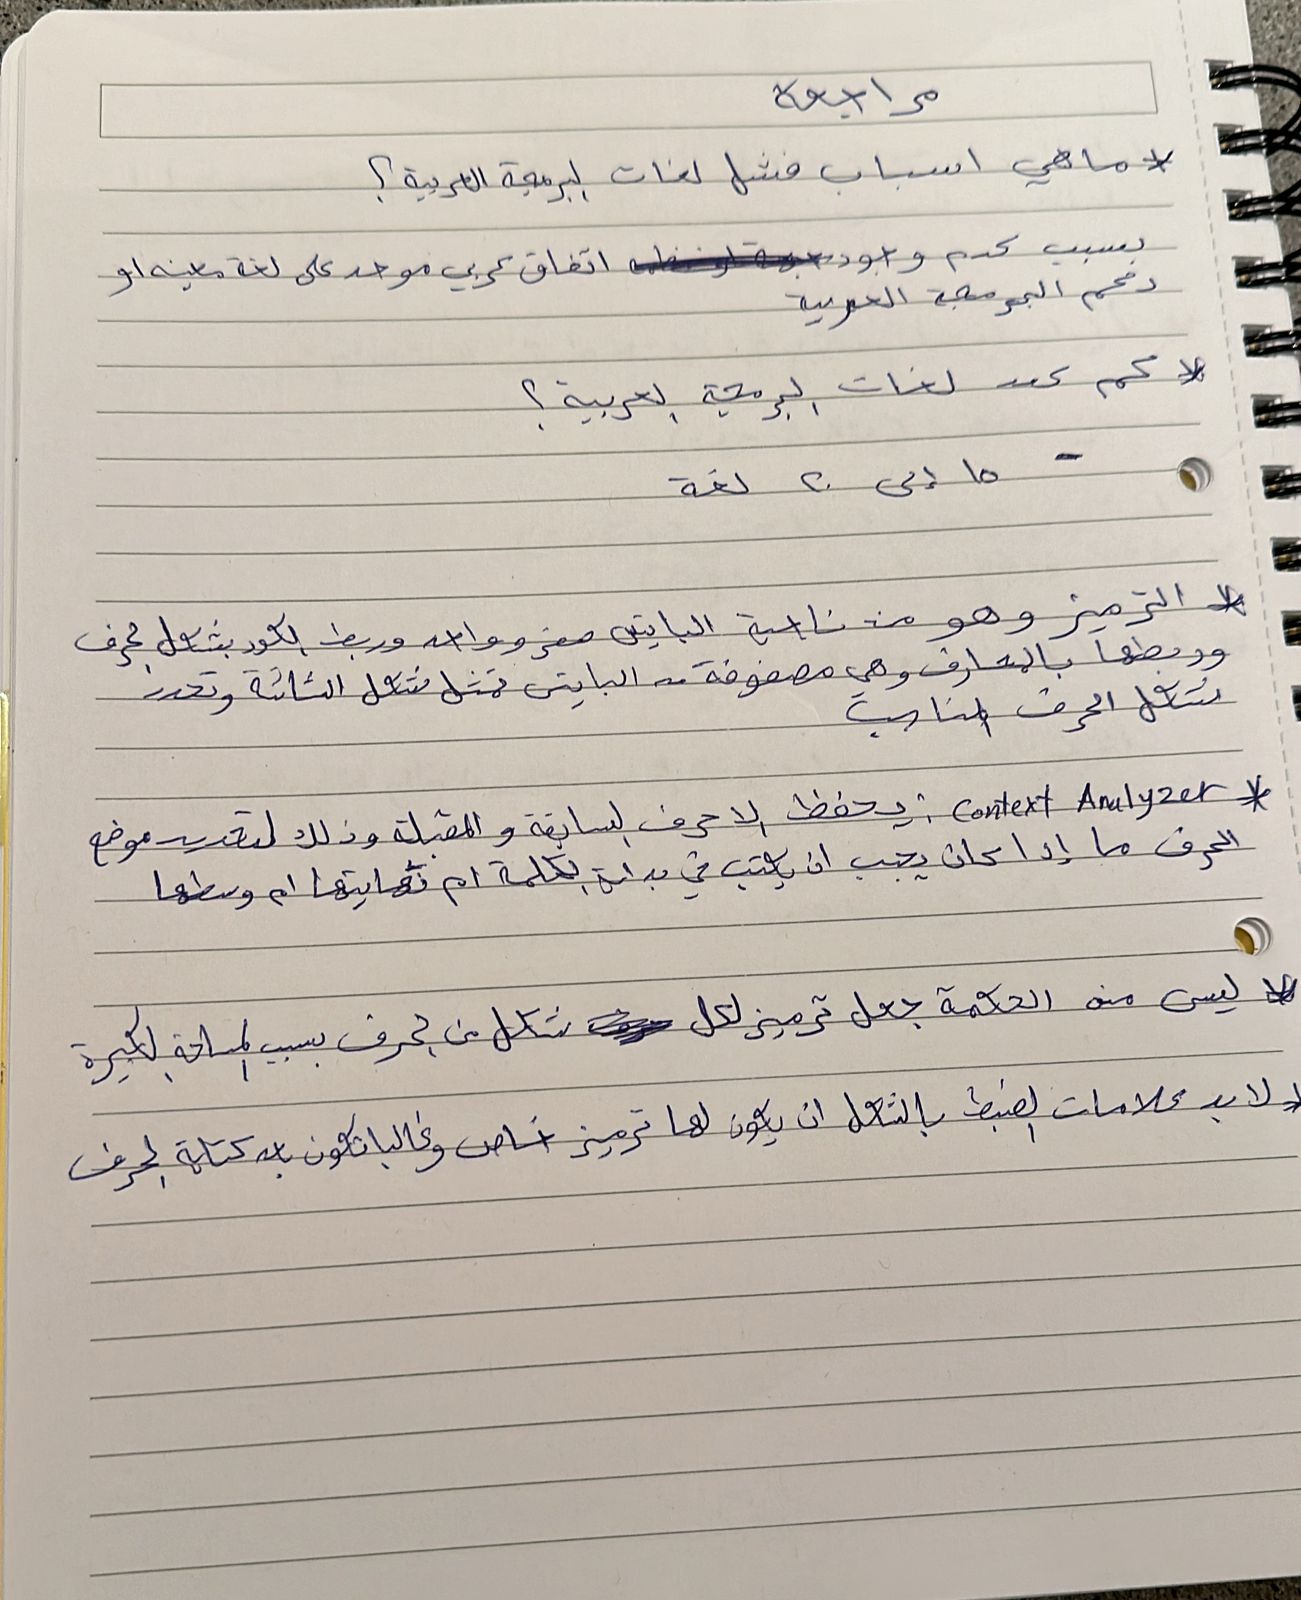 مراجعة
* ما هي اسباب فشل لغات البرمجة العربية؟
بسبب عدم وجود اتفاق عربي موحد على لغة معينه او
دعم البرمجة العربية
* كم عدد لغات البرمجة العربية؟
- ١٥ إلى ٢٠ لغة
* الترميز وهو من ناحية البايتس صفر و واحد وربط الكود بشكل الحرف
وربطها بالمحارف وهي مصفوفة من البايتس تمثل شكل الشاشة وتحدد
شكل الحرف المناسب
* Context Analyzer : يحفظ الاحرف السابقة و المقبلة وذلك لتحديد موضع
الحرف ما إذا كان يجب ان يكتب في بداية الكلمة ام نهايتها ام وسطها
* ليس من الحكمة جعل ترميز لكل شكل من الحرف بسبب المساحة الكبيرة
* لابد علامات الضبط بالشكل ان يكون لها ترميز خاص وغالبا تكون بعد كتابة الحرف